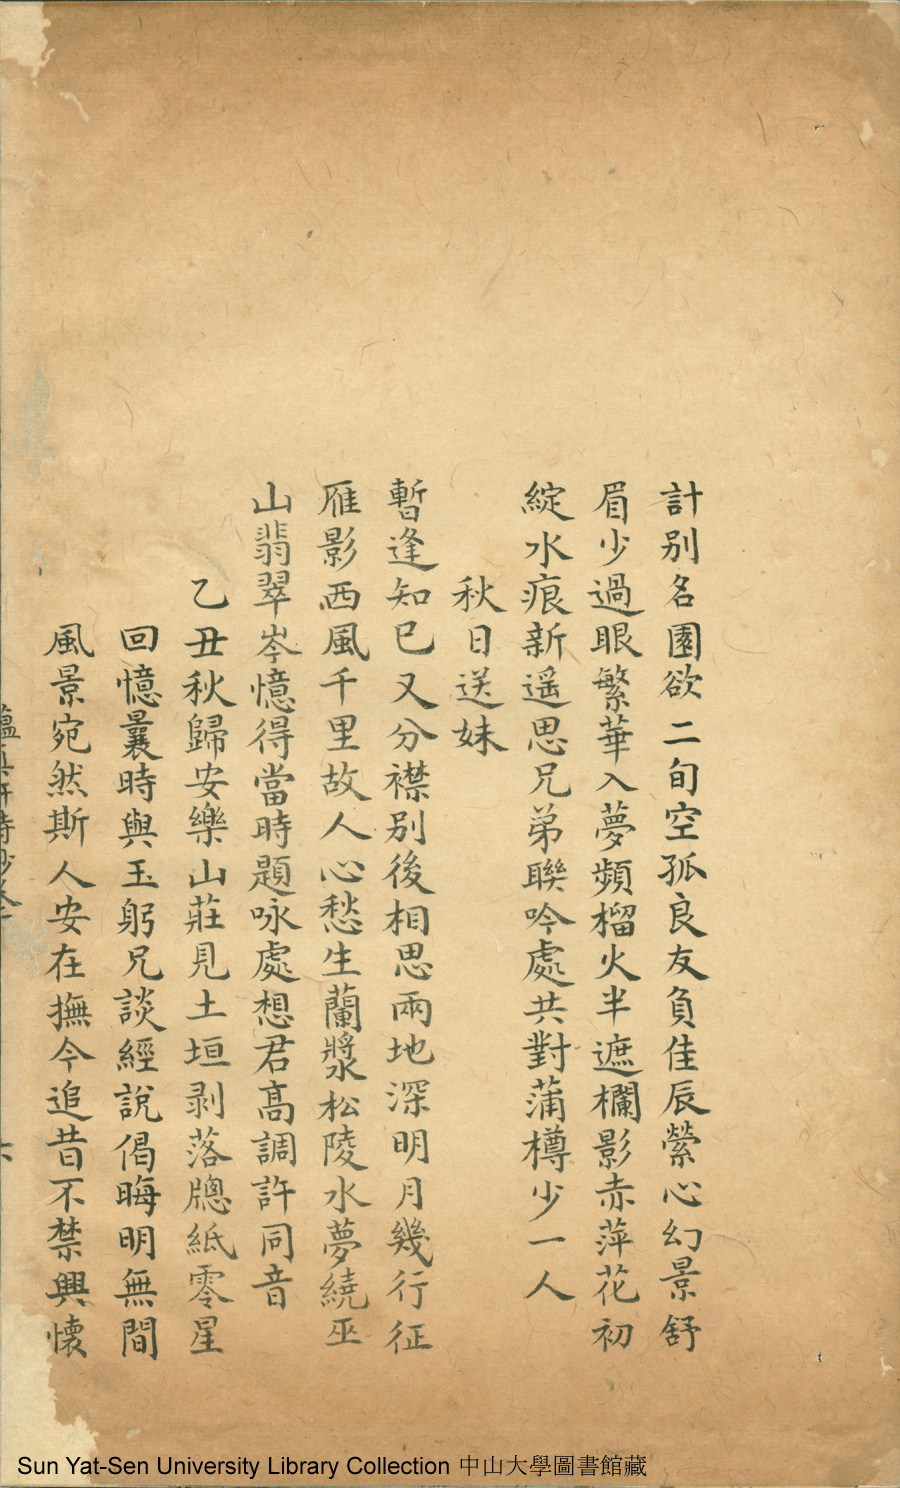 計别名園欲二旬空孤良友負佳辰縈心幻景舒
眉少過眼繁華入夢頻榴火半遮欄影赤萍花初
綻水痕新遥思兄弟聯吟處共對蒲樽少一人
秋日送妹
暫逢知已又分襟别後相思兩地深明月幾行征
雁影西風千里故人心愁生蘭漿松陵水夢繞巫
山翡翠岑憶得當時題咏處想君髙調許同音
乙丑秋歸安樂山莊見土垣剥落牕紙零星
回憶曩時與玉躬兄談經説偈晦明無間
風景宛然斯人安在撫今追昔不禁興懷
蘊真軒詩鈔卷下
六
Sun Yat-Sen University Library Collection 中山大學圖書館藏